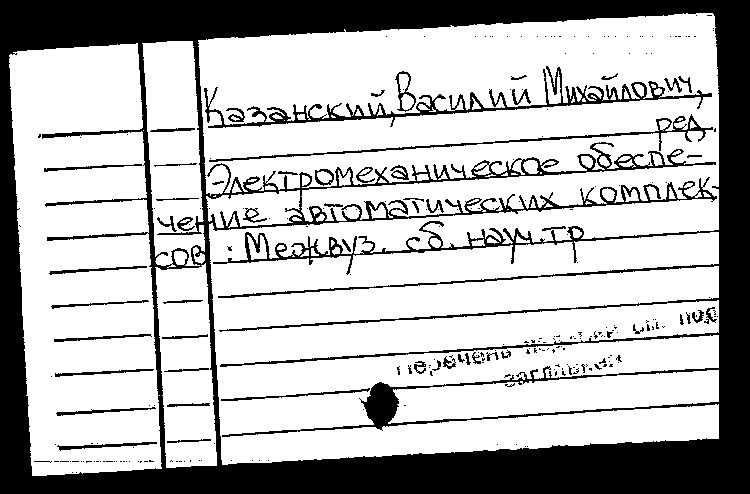 Казанский, Василий Михайлович,
ред.
Электромеханическое обеспе-
чение автоматических комплек-
сов : Межвуз. сб. науч. тр
перечень см. под
заглавием